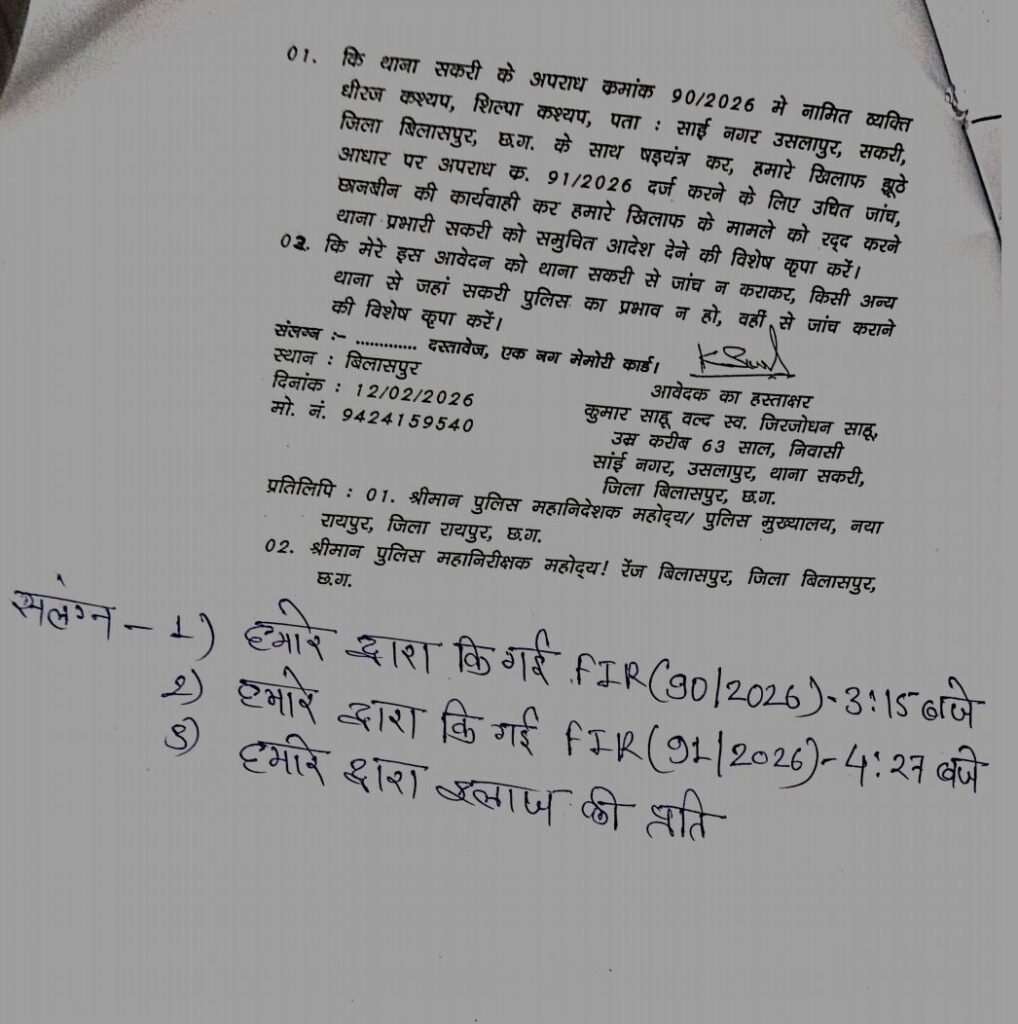 01. कि थाना सकरी के अपराध कमांक 90/2026 मे नामित व्यक्ति
धीरज कश्यप, शिल्पा कश्यप, पता : साई नगर उसलापुर, सकरी,
जिला बिलासपुर, छ.ग. के साथ षड़यंत्र कर, हमारे खिलाफ झूठे
आधार पर अपराध क. 91/2026 दर्ज करने के लिए उचित जांच,
छानबीन की कार्यवाही कर हमारे खिलाफ के मामले को रद्द करने
थाना प्रभारी सकरी को समुचित आदेश देने की विशेष कृपा करें।
02. कि मेरे इस आवेदन को थाना सकरी से जांच न कराकर, किसी अन्य
थाना से जहां सकरी पुलिस का प्रभाव न हो, वहीं से जांच कराने
की विशेष कृपा करें।
संलग्न :- ............. दस्तावेज, एक नग मेमोरी कार्ड।
स्थान : बिलासपुर
दिनांक : 12/02/2026
मो. नं. 9424159540
आवेदक का हस्ताक्षर
कुमार साहू वल्द स्व. जिरजोधन साहू,
उम्र करीब 63 साल, निवासी
सांई नगर, उसलापुर, थाना सकरी,
जिला बिलासपुर, छ.ग.
प्रतिलिपि : 01. श्रीमान पुलिस महानिदेशक महोद्य/ पुलिस मुख्यालय, नया
रायपुर, जिला रायपुर, छ.ग.
02. श्रीमान पुलिस महानिरीक्षक महोद्य! रेंज बिलासपुर, जिला बिलासपुर,
छ.ग.
सलंग्न - 1) हमारे द्वारा कि गई FIR(90/2026)-3:15 बजे
2) हमारे द्वारा कि गई FIR(91/2026)-4:27 बजे
3) हमारे द्वारा इलाज की प्रति